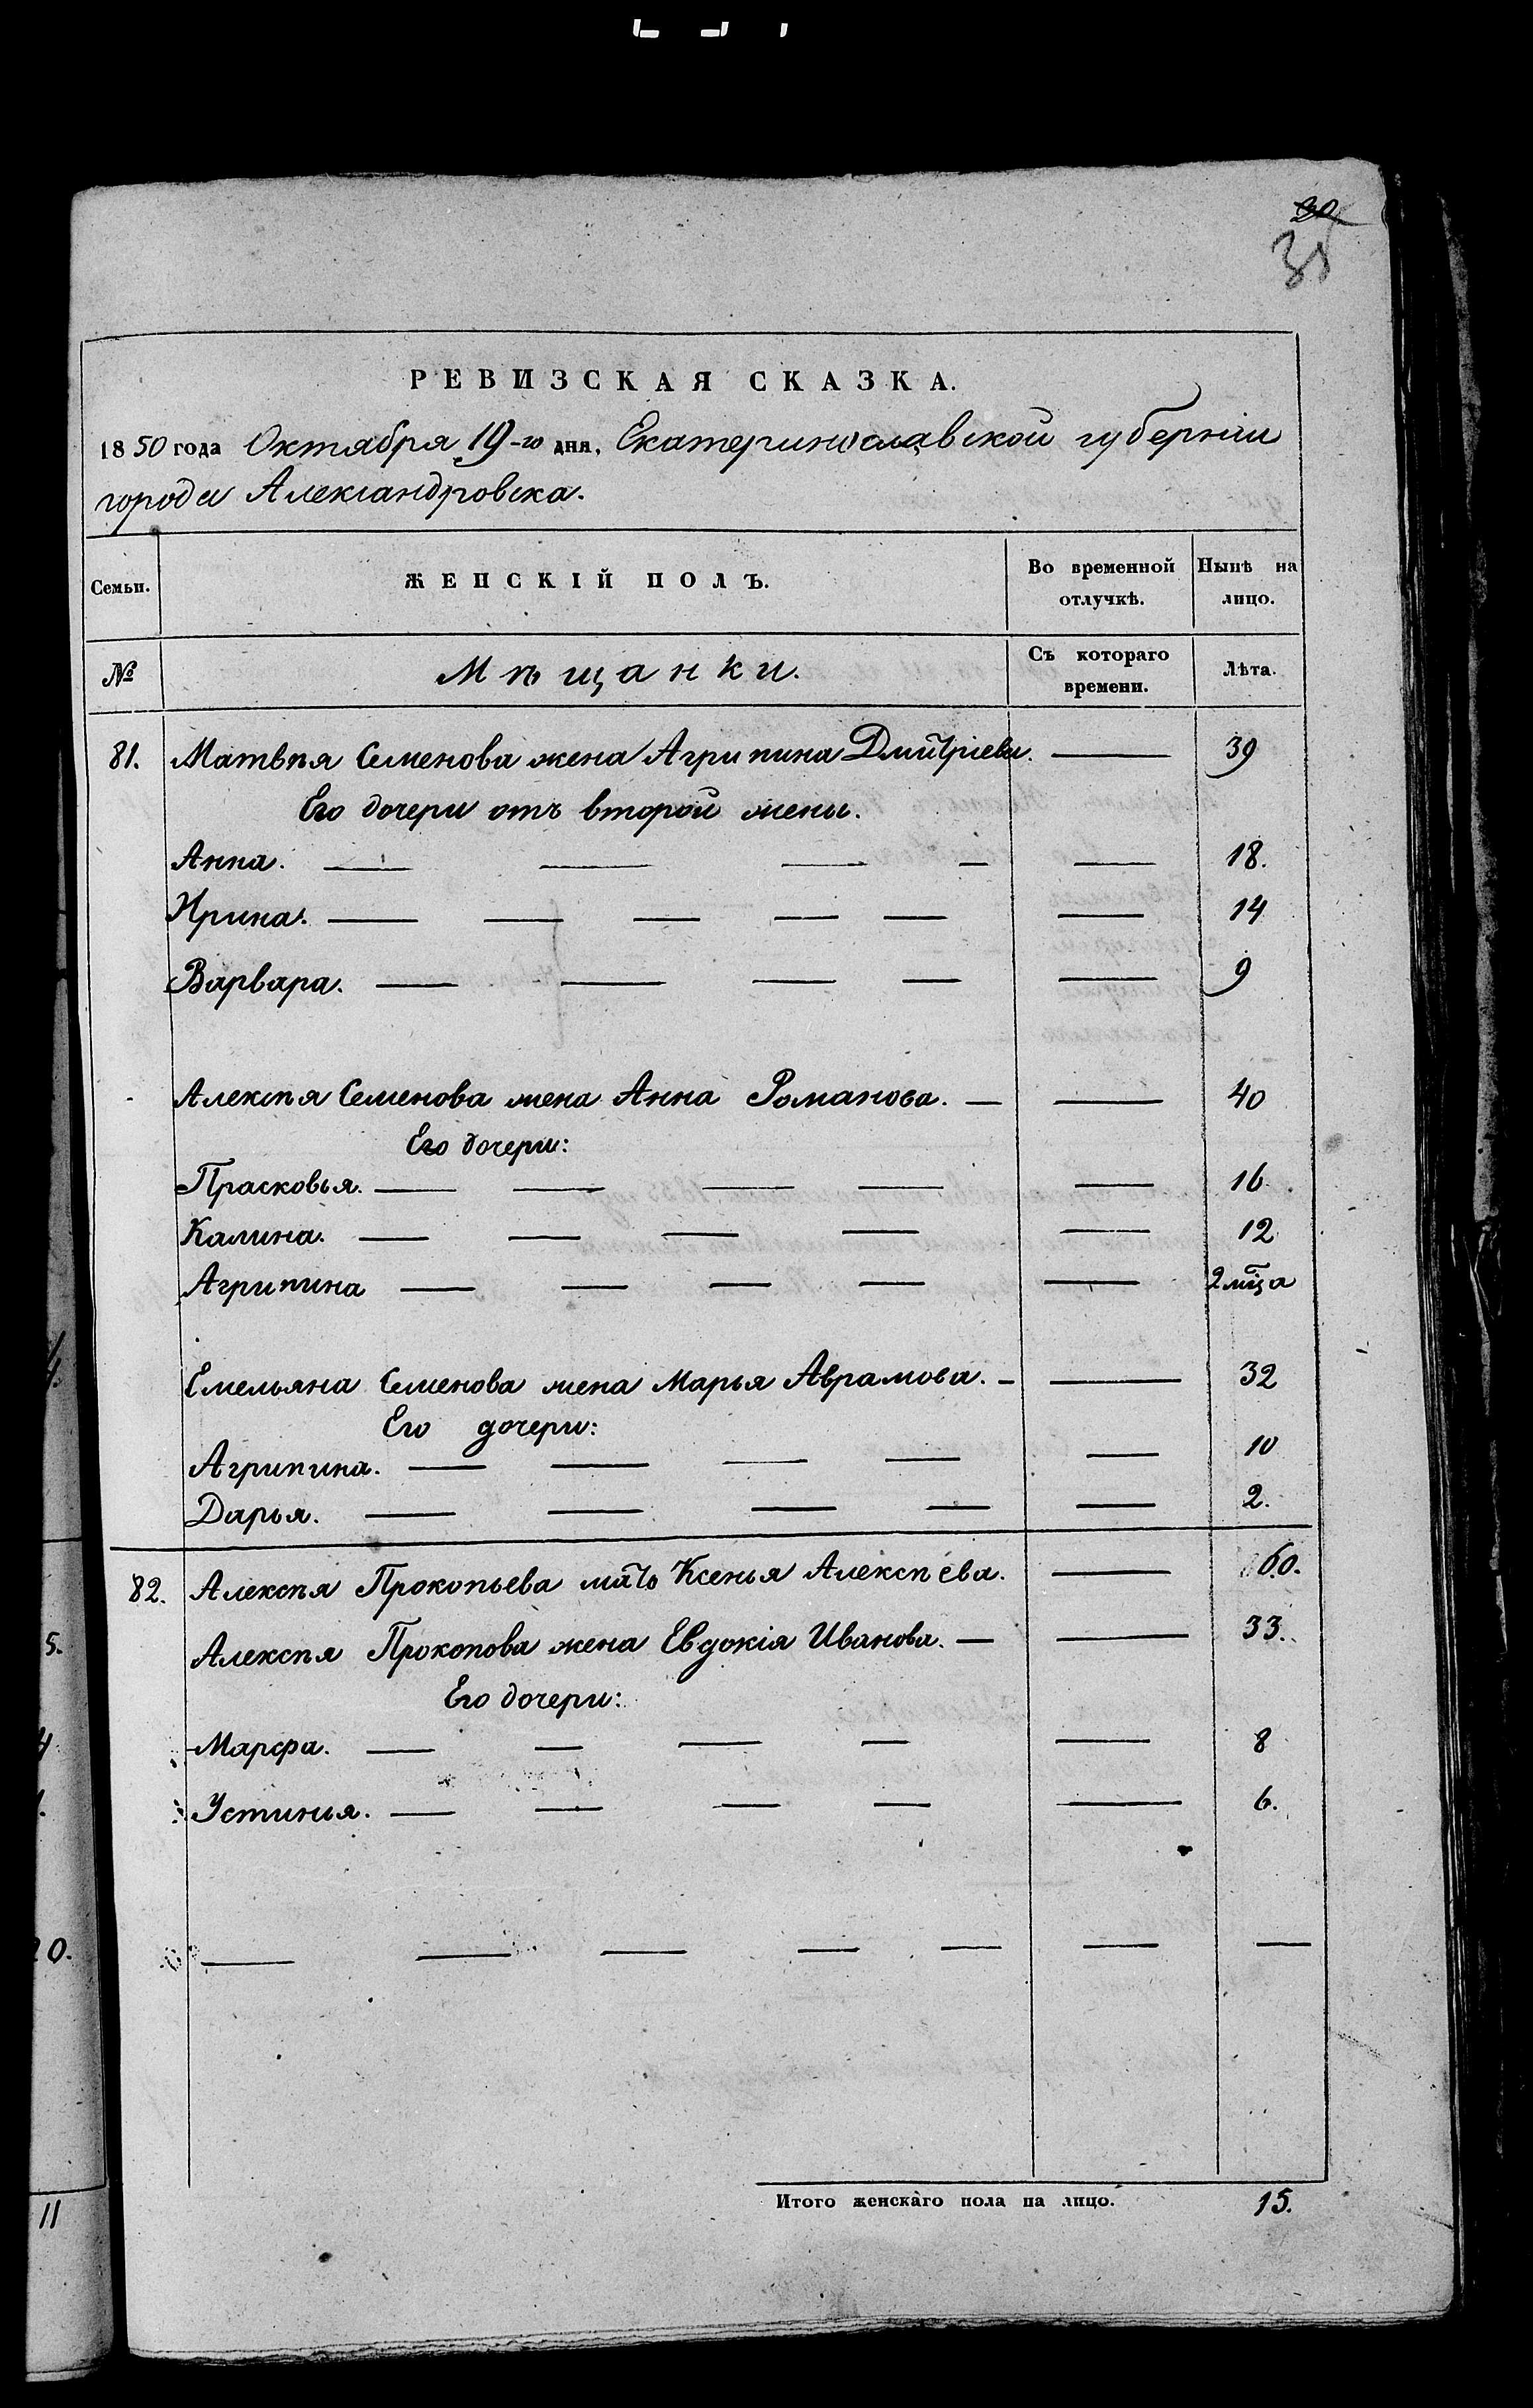 30
35
РЕВИЗСКАЯ СКАЗКА.
1850 года Октября 19-го дня, Екатеринославской губерніи
города Александровска.
Семьи. ЖЕНСКІЙ ПОЛЪ. Во временной отлучкѣ. Нынѣ на лицо.
№ Мѣщанки. Съ котораго времени. Лѣта.
81. Матвѣя Семенова жена Агрипина Дмитріева. — 39
Его дочери отъ второй жены.
Анна. — — — — — 18.
Ирина. — — — — — — 14
Варвара. — — — — — 9
Алексѣя Семенова жена Анна Романова. — — 40
Его дочери:
Прасковья. — — — — — 16
Калина. — — — — — 12
Агрипина — — — — — 2 мца
Емельяна Семенова жена Марья Аврамова. — — 32
Его дочери:
Агрипина. — — — — — 10
Дарья. — — — — — 2.
82. Алексѣя Прокопьева мать Ксенья Алексѣева. — 60.
Алексѣя Прокопова жена Евдокія Иванова. — — 33.
Его дочери:
Марфа. — — — — — 8
Устинья. — — — — — 6.
— — — — — — —
Итого женскаго пола на лицо. 15.
4.
5.
4
1.
20.
11